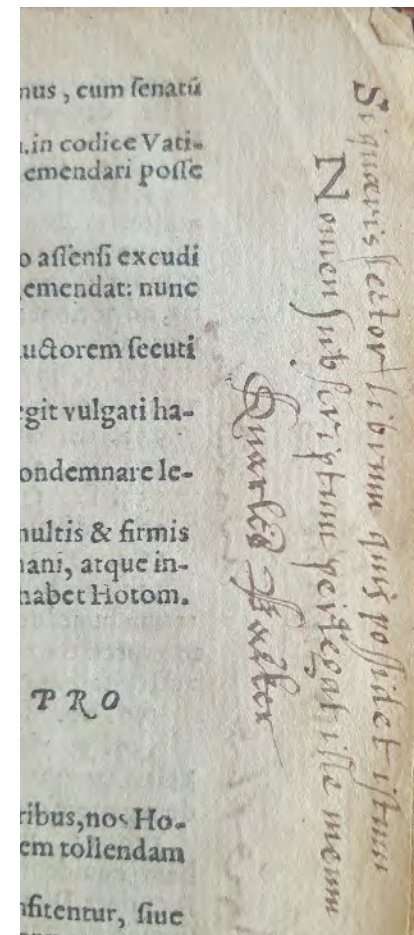 nus, cum ſenatũ
.in codice Vati-
emendari poſſe
o aſſenſi excudi
emendat: nunc
uctorem ſecuti
egit vulgati ha-
ondemnare le-
nultis & firmis
nani, atque in-
habet Hotom.
PRO
ribus, nos Ho-
em tollendam
nfitentur, ſiue
Si quæris lector librum quis poſſidet iſtum
Nomen ſubſcriptum perlegat ille meum
Quarles